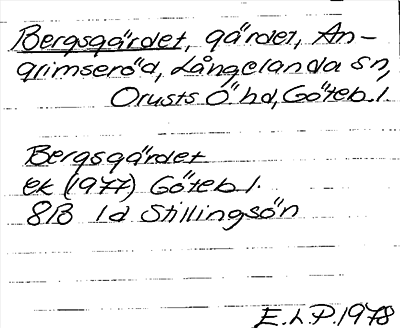 Bergsgärdet, gärdet, An-
grimseröd, Långelanda sn,
Orusts Ö hd, Göteb. l.
Bergsgärdet
ek (1977) Göteb l.
8B 1d Stillingsön
E.L.P. 1978